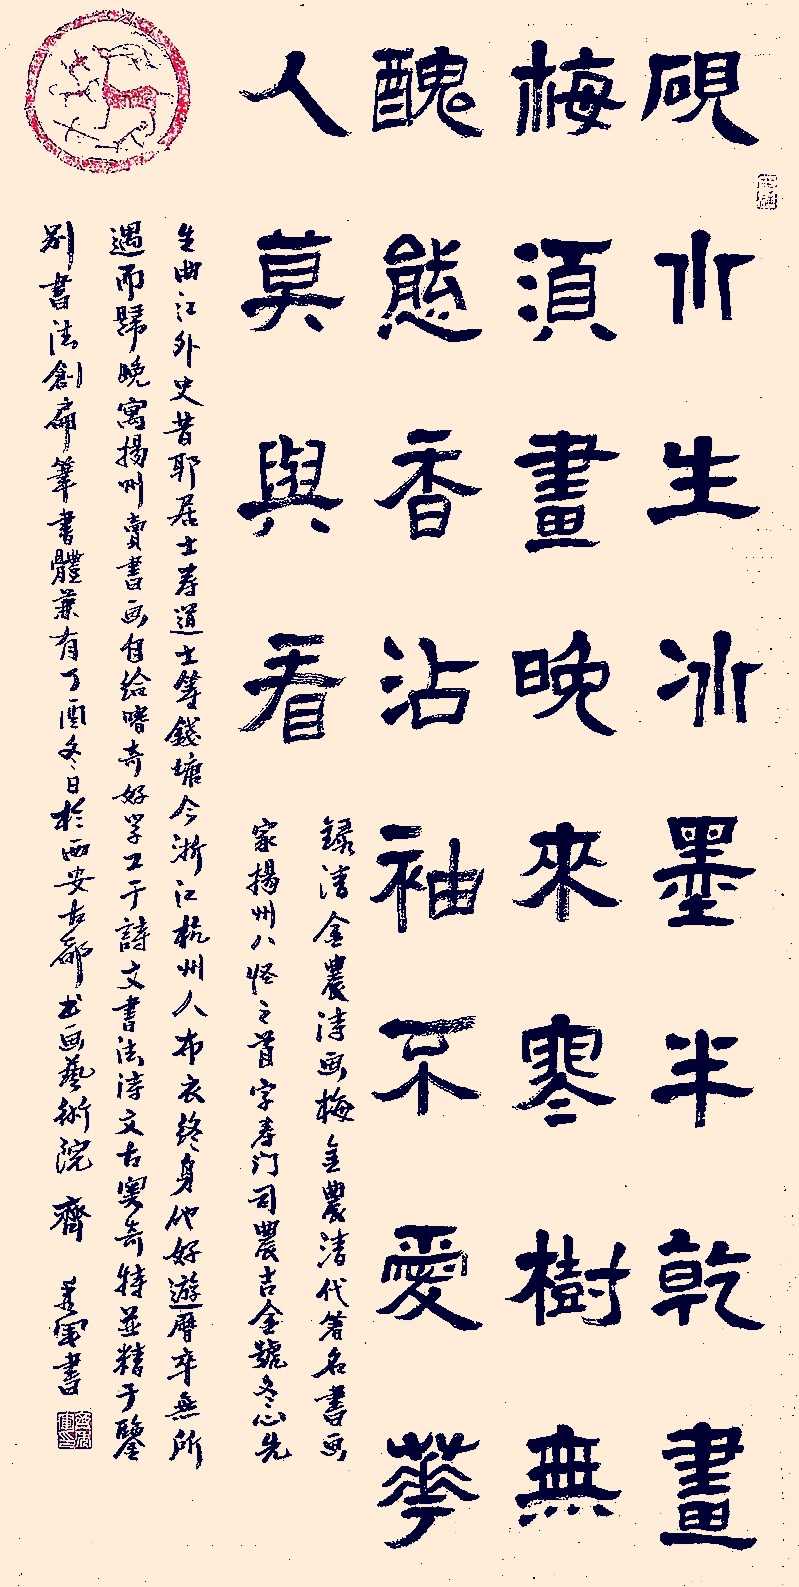 硯水生冰墨半乾畫
梅須畫晚來寒樹無
醜態香沾袖不愛華
人莫與看
錄清金農詩畫梅金農清代著名書画
家揚州八怪之首字寿门司農吉金號冬心先
生曲江外史昔耶居士寿道士等錢塘今浙江杭州人布衣终身他好遊曆卒無所
遇而歸晚寓揚州賣書画自给嗜奇好学工于詩文書法诗文古奥奇特並精于鑒
别書法創扁筆書體兼有丁酉冬日於西安古都书画藝術院 齊 軍書